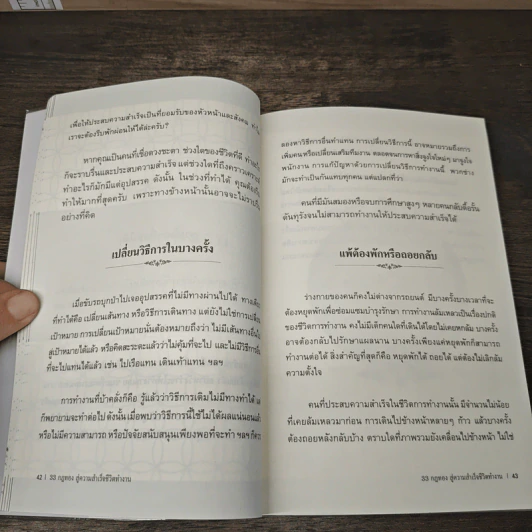 เพื่อให้ประสบความสำเร็จเป็นที่ยอมรับของหัวหน้าและสังคม
เราจะต้องรีบพักผ่อนให้ได้ล่ะครับ?
หากคุณเป็นคนที่เชื่อดวงชะตา ช่วงใดของชีวิตที่ดี
ก็จะราบรื่นและประสบความสำเร็จ แต่ช่วงใดที่ถึงคราวเคราะห์
ทำอะไรก็มักมีแต่อุปสรรค ดังนั้น ในช่วงที่ทำได้ คุณต้อง
ทำให้มากที่สุดครับ เพราะทางข้างหน้านั้นอาจจะไม่ราบรื่น
อย่างที่คิด
เปลี่ยนวิธีการในบางครั้ง
เมื่อขับรถบุกป่าไปเจออุปสรรคที่ไม่มีทางผ่านไปได้
ที่ทำได้คือ เปลี่ยนเส้นทาง หรือวิธีการเดินทาง แต่ยังไม่ใช่การ
เป้าหมาย การเปลี่ยนเป้าหมายนั่นต้องหมายถึงว่า ไม่มีเส้นทางอื่น
สู่เป้าหมายได้แล้ว หรือคิดสะระตะแล้วว่าไม่คุ้มที่จะไป และไม่มีวิธีการ
ที่จะไปแทนได้แล้ว เช่น ไปเรือแทน เดินเท้าแทน ฯลฯ
การทำงานที่บ้าคลั่งก็คือ รู้แล้วว่าวิธีการเดิมไม่มีทางทำได้
ก็พยายามจะทำต่อไป ดังนั้น เมื่อพบว่าวิธีการนี้ใช้ไม่ได้ผลแน่นอนแล้ว
หรือไม่มีความสามารถ หรือปัจจัยสนับสนุนเพียงพอที่จะทำ ฯลฯ ก็ควร
42 | 33 กฎทอง สู่ความสำเร็จชีวิตทำงาน
ลองหาวิธีการอื่นทำแทน การเปลี่ยนวิธีการนี้ อาจหมายรวมถึงการ
เพิ่มคนหรือเปลี่ยนเสริมทีมงาน ตลอดจนการหาสิ่งจูงใจใหม่ๆ มาจูงใจ
พนักงาน การแก้ปัญหาด้วยการเปลี่ยนวิธีการทำงานนี้ พวกช่าง
มักจะทำเป็นกันแทบทุกคน แต่แปลกที่ว่า
คนที่มีมันสมองหรือจบการศึกษาสูงๆ หลายคนกลับดื้อรั้น
ดันทุรังจนไม่สามารถทำงานให้ประสบความสำเร็จได้
แพ้ต้องพักหรือถอยกลับ
ร่างกายของคนก็คงไม่ต่างจากรถยนต์ มีบางครั้งบางเวลาที่จะ
ต้องหยุดพักเพื่อซ่อมแซมบำรุงรักษา การทำงานล้มเหลวเป็นเรื่องปกติ
ของชีวิตการทำงาน คงไม่มีเด็กคนใดที่เดินได้โดยไม่เคยหกล้ม บางครั้ง
อาจต้องกลับไปรักษาแผลนาน บางครั้งเพียงแค่หยุดพักก็สามารถ
ทำงานต่อได้ สิ่งสำคัญที่สุดก็คือ หยุดพักได้ ถอยได้ แต่ต้องไม่เลิกล้ม
ความตั้งใจ
คนที่ประสบความสำเร็จในชีวิตการทำงานนั้น มีจำนวนไม่น้อย
ที่เคยล้มเหลวมาก่อน การเดินไปข้างหน้าหลายๆ ก้าว แล้วบางครั้ง
ต้องถอยหลังกลับบ้าง ตราบใดที่ภาพรวมยังเคลื่อนไปข้างหน้า ไม่ใช่
33 กฎทอง สู่ความสำเร็จชีวิตทำงาน | 43